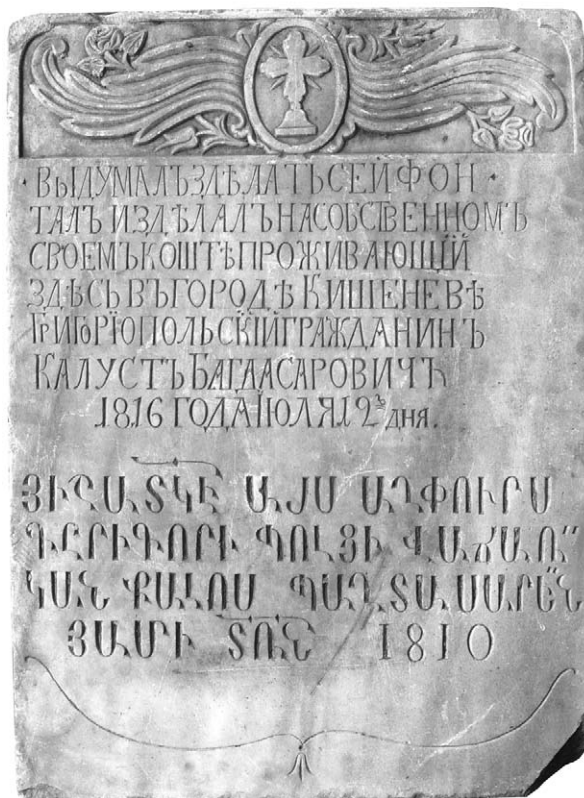 ВЫДУМАЛЪ ЗДѢЛАТЬ СЕЙ ФОН
ТАЛЪ И ЗДѢЛАЛЪ НА СОБСТВЕННОМЪ
СВОЕМЪ КОШТѢ ПРОЖИВАЮЩЇЙ
ЗДѢСЬ ВЪ ГОРОДѢ КИШЕНЕВѢ
ГРИГОРЇОПОЛЬСКЇЙ ГРАЖДАНИНЪ
КАЛУСТЪ БАГДАСАРОВИЧЪ
1816 ГОДА ЇЮЛЯ 12 ДНЯ.
ՅԻՇԱՏԿԷ ԱՅՍ ԱՂԲՈՒՐՍ
ԳԸՐԻԳՈՐԻ ՊՈԼՅԻ ՎԱՃԱՌ
ԿԱՆ ՔԱԼՈՍ ՊԱՂՏԱՍԱՐԵՆ
ՅԱՄԻ ՏՌՆ 1810